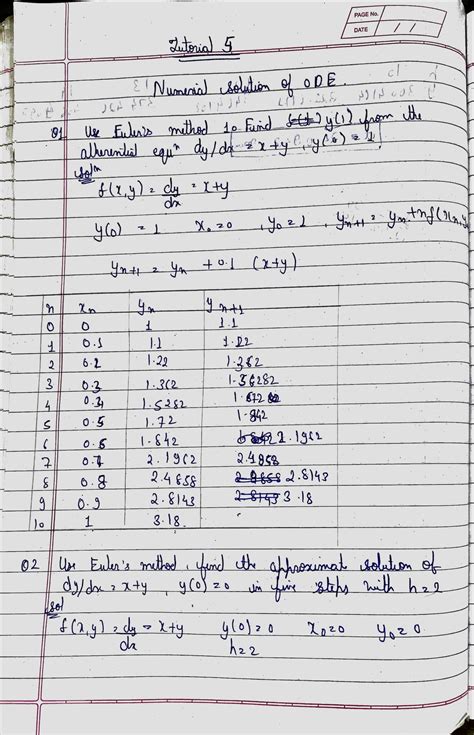 PAGE No.
DATE / /
Tutorial 5
Numerial solution of ODE.
Q1 Use Euler's method to Find y(1) from the
dy/dx = x+y , y(0) = 1
Soln
f(x,y) = dy/dx = x+y
y(0) = 1 x0 = 0 , y0 = 1 , yn+1 = yn + hf(xn,yn
yn+1 = yn + 0.1 (x+y)
n xn yn yn+1
0 0 1 1.1
1 0.1 1.1 1.22
2 0.2 1.22 1.362
3 0.3 1.362 1.56282
4 0.4 1.5282
5 0.5 1.72 1.842
6 0.6 1.842 2.1962
7 0.7 2.1962 2.4858
8 0.8 2.4658 2.8143
9 0.9 2.8143 3.18
10 1 3.18
Q2 Use Euler's method, find the approximat solution of
dy/dx = x+y , y(0) = 0 in five steps with h=2
Sol
f(x,y) = dy/dx = x+y y(0) = 0 x0 = 0 y0 = 0
h=2